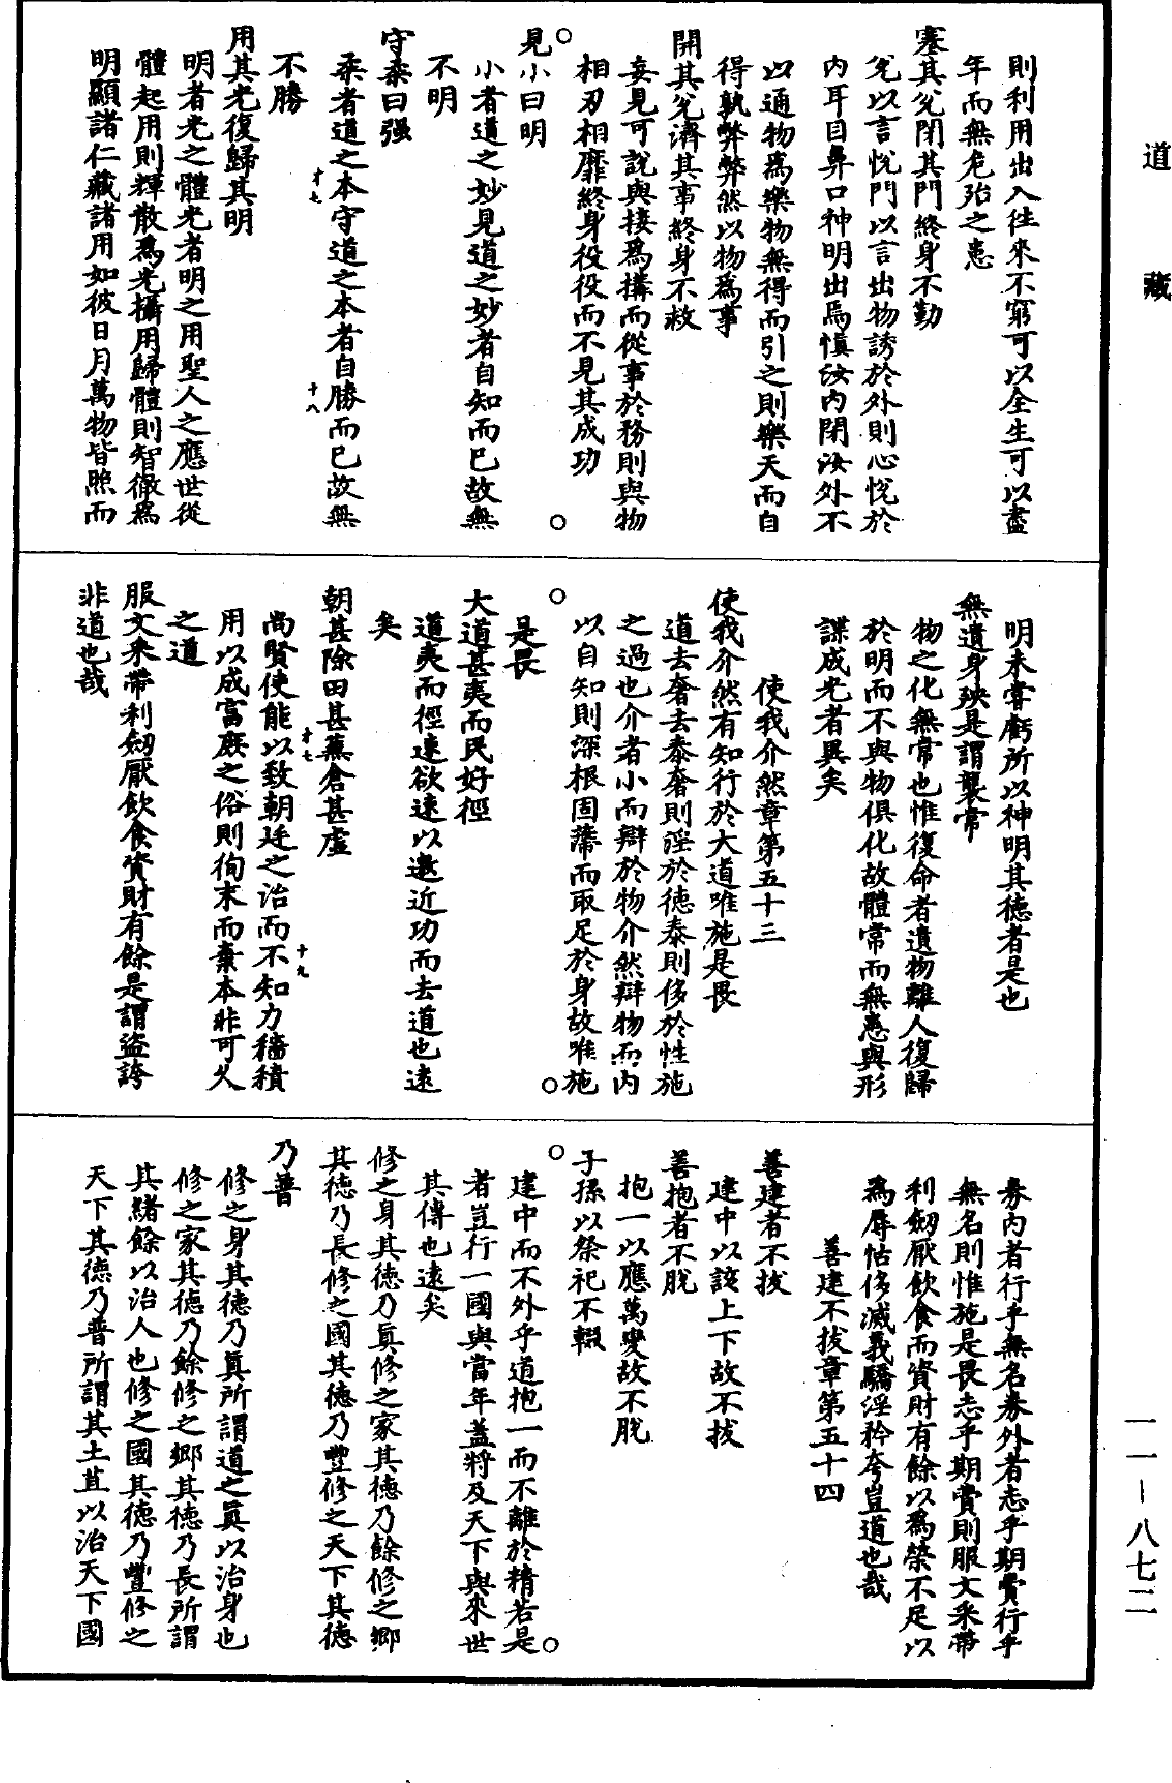 道藏
則利用出入往來不窮可以全生可以盡
年而無危殆之患
塞其兌閉其門終身不勤
兌以言悅門以言出物誘於外則心悅於
内耳目鼻口神明出焉慎汝内閉汝外不
以通物爲樂物無得而引之則樂天而自
得孰弊弊然以物爲事
開其兌濟其事終身不救
妄見可說與接爲搆而從事於務則與物
相刃相靡終身役役而不見其成功
見小曰明
小者道之妙見道之妙者自知而已故無
不明
守柔曰强
柔者道之本守道之本者自勝而已故無
不勝
才七
十八
用其光復歸其明
明者光之體光者明之用聖人之應世從
體起用則輝散爲光攝用歸體則智徹爲
明顯諸仁藏諸用如彼日月萬物皆照而
明未嘗虧所以神明其德者是也
無遺身殃是謂襲常
物之化無常也惟復命者遺物離人復歸
於明而不與物俱化故體常而無患與形
謀成光者異矣
使我介然章第五十三
使我介然有知行於大道唯施是畏
道去奢去泰奢則淫於德泰則侈於性施
之過也介者小而辯於物介然辯物而内
以自知則深根固蔕而取足於身故唯施
是畏
大道甚夷而民好徑
道夷而徑速欲速以邀近功而去道也遠
矣
朝甚除田甚蕪倉甚虛
尚賢使能以致朝廷之治而不知力穡積
用以成富庶之俗則徇末而棄本非可久
之道
才七
十九
服文采帶利劒厭飲食資財有餘是謂盜誇
非道也哉
券内者行乎無名券外者志乎期費行乎
無名則惟施是畏志乎期費則服文采帶
利劒厭飲食而資財有餘以爲榮不足以
爲辱怙侈滅義驕淫矜夸豈道也哉
善建不拔章第五十四
善建者不拔
建中以該上下故不拔
善抱者不脫
抱一以應萬變故不脫
子孫以祭祀不輟
建中而不外乎道抱一而不離於精若是
者豈行一國與當年蓋將及天下與來世
其傳也遠矣
修之身其德乃眞修之家其德乃餘修之鄉
其德乃長修之國其德乃豐修之天下其德
乃普
修之身其德乃眞所謂道之眞以治身也
修之家其德乃餘修之鄉其德乃長所謂
其緒餘以治人也修之國其德乃豐修之
天下其德乃普所謂其土苴以治天下國
一一－八七二